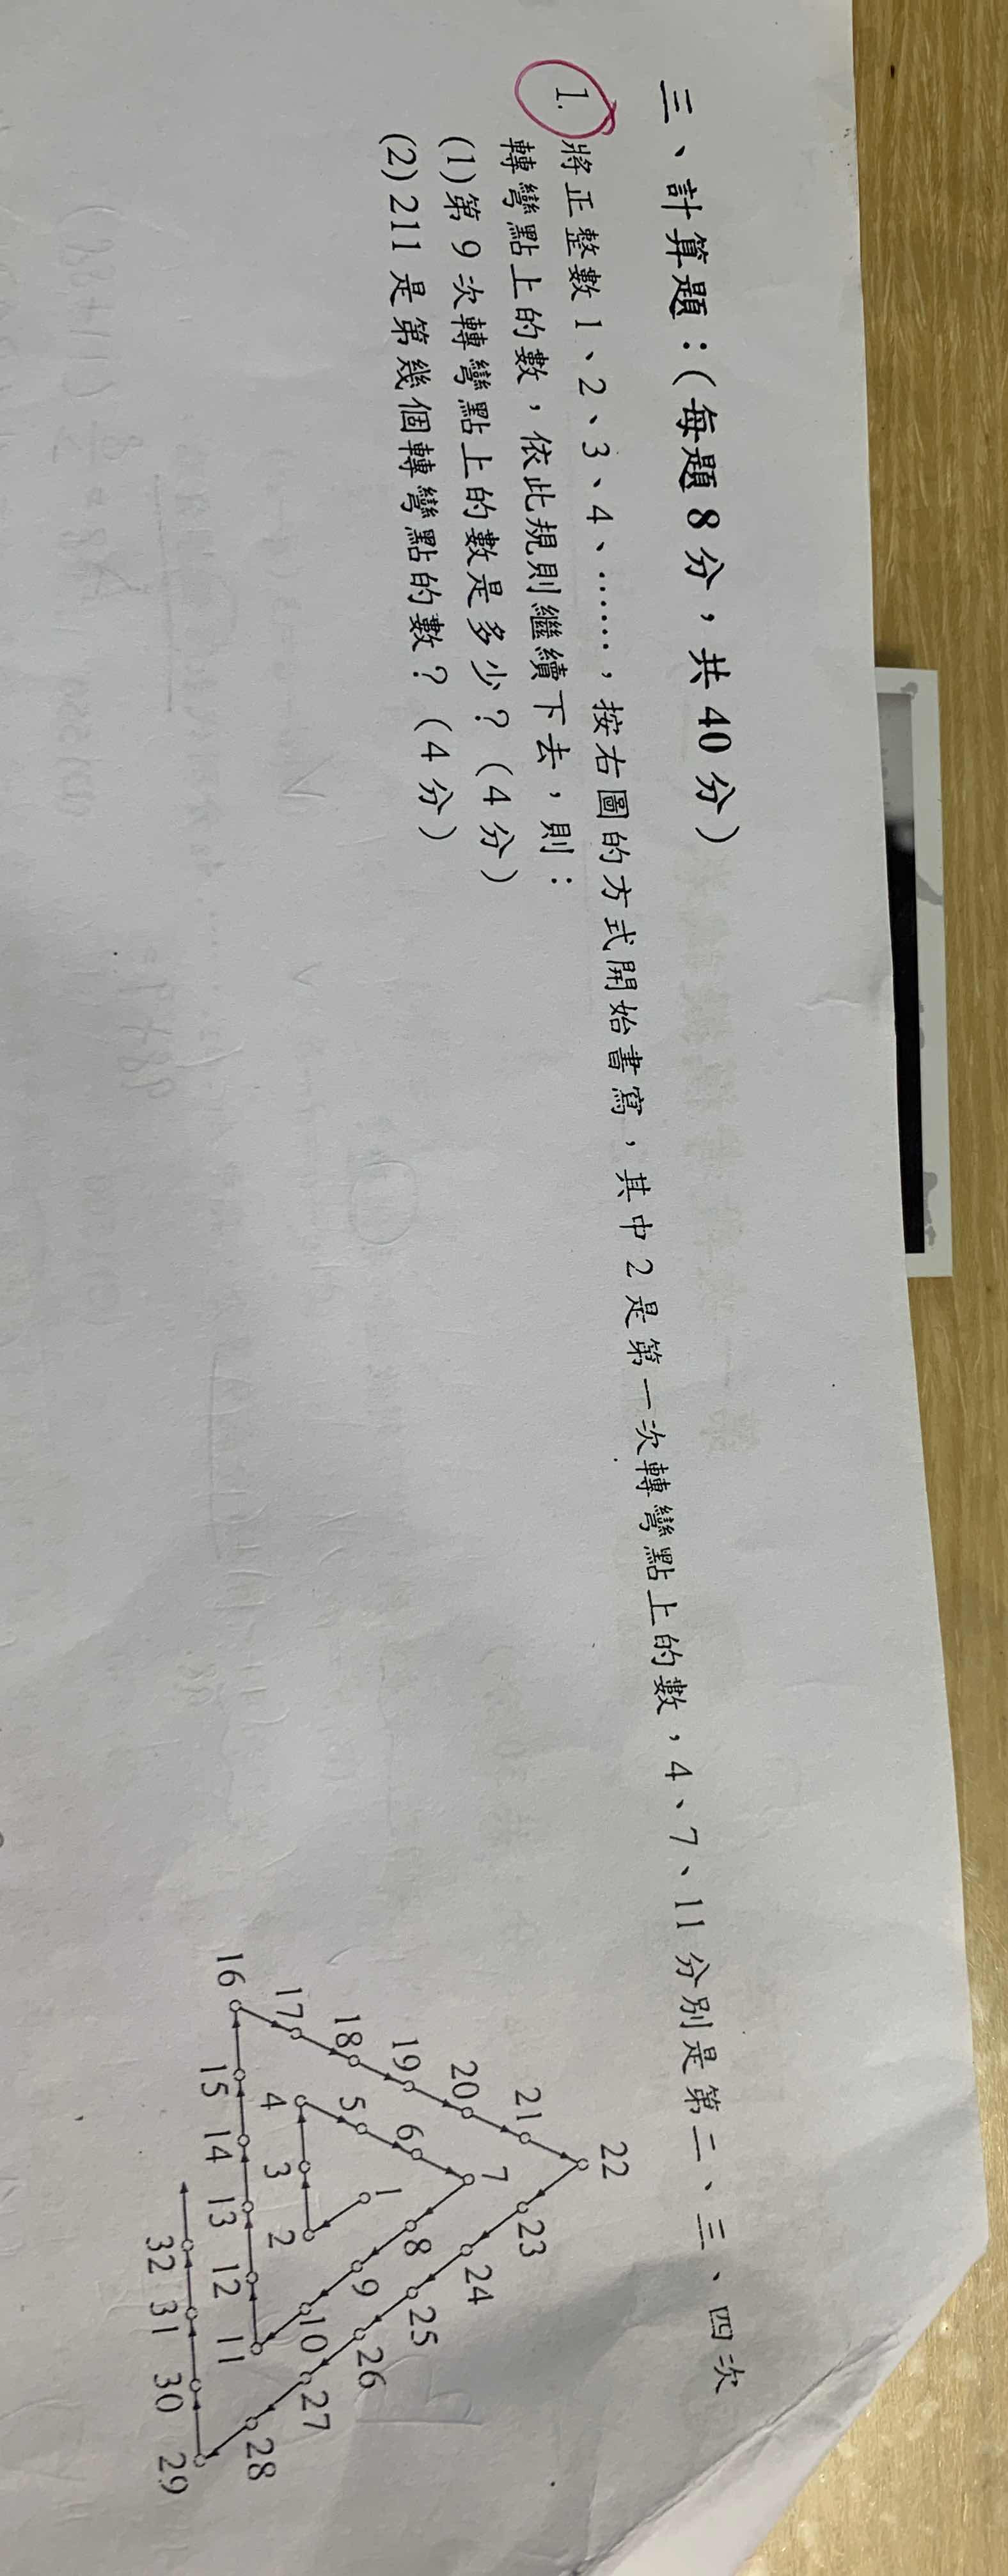 三、計算題：(每題8分，共40分)
1. 將正整數1、2、3、4、……，按右圖的方式開始書寫，其中2是第一次轉彎點上的數，4、7、11分別是第二、三、四次
轉彎點上的數，依此規則繼續下去，則：
(1)第9次轉彎點上的數是多少？(4分)
(2)211是第幾個轉彎點的數？(4分)
22
21 23
20 7 24
19 6 1 8 25
18 5 9 26
17 4 3 2 10 27
16 15 14 13 12 11 28
32 31 30 29